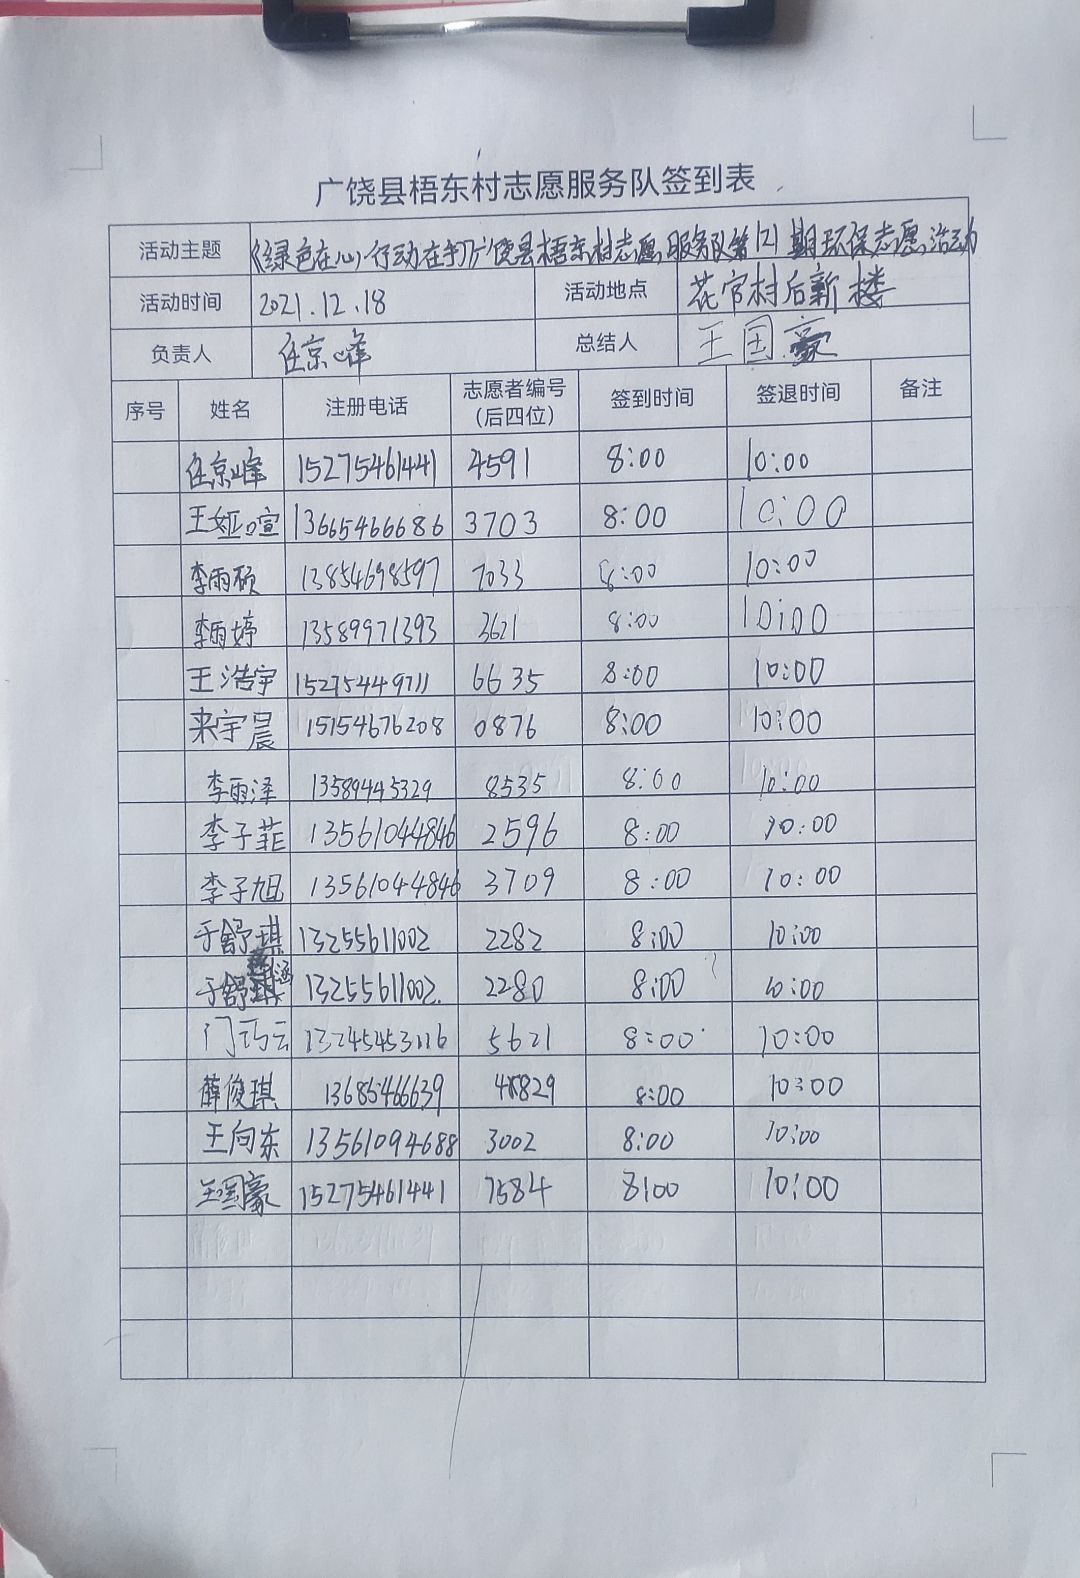 广饶县梧东村志愿服务队签到表
活动主题 《绿色在心,行动在手》广饶县梧东村志愿服务队第121期环保志愿活动
活动时间 2021.12.18 活动地点 花官村后新楼
负责人 任京峰 总结人 王国豪
序号 姓名 注册电话 志愿者编号(后四位) 签到时间 签退时间 备注
任京峰 15275461441 4591 8:00 10:00
王娅喧 13665466686 3703 8:00 10:00
李雨硕 13854698597 7033 8:00 10:00
李雨婷 13589971393 3621 8:00 10:00
王浩宇 15275449711 6635 8:00 10:00
来宇晨 15154676208 0876 8:00 10:00
李雨泽 13589445329 8535 8:00 10:00
李子菲 13561044846 2596 8:00 10:00
李子旭 13561044846 3709 8:00 10:00
于舒琪 13255611002 2282 8:00 10:00
于舒涵 13255611002. 2280 8:00 10:00
门巧云 5621 8:00 10:00
薛俊琪 13685466639 8:00 10:00
王向东 13561094688 3002 8:00 10:00
王国豪 15275461441 7584 8:00 10:00